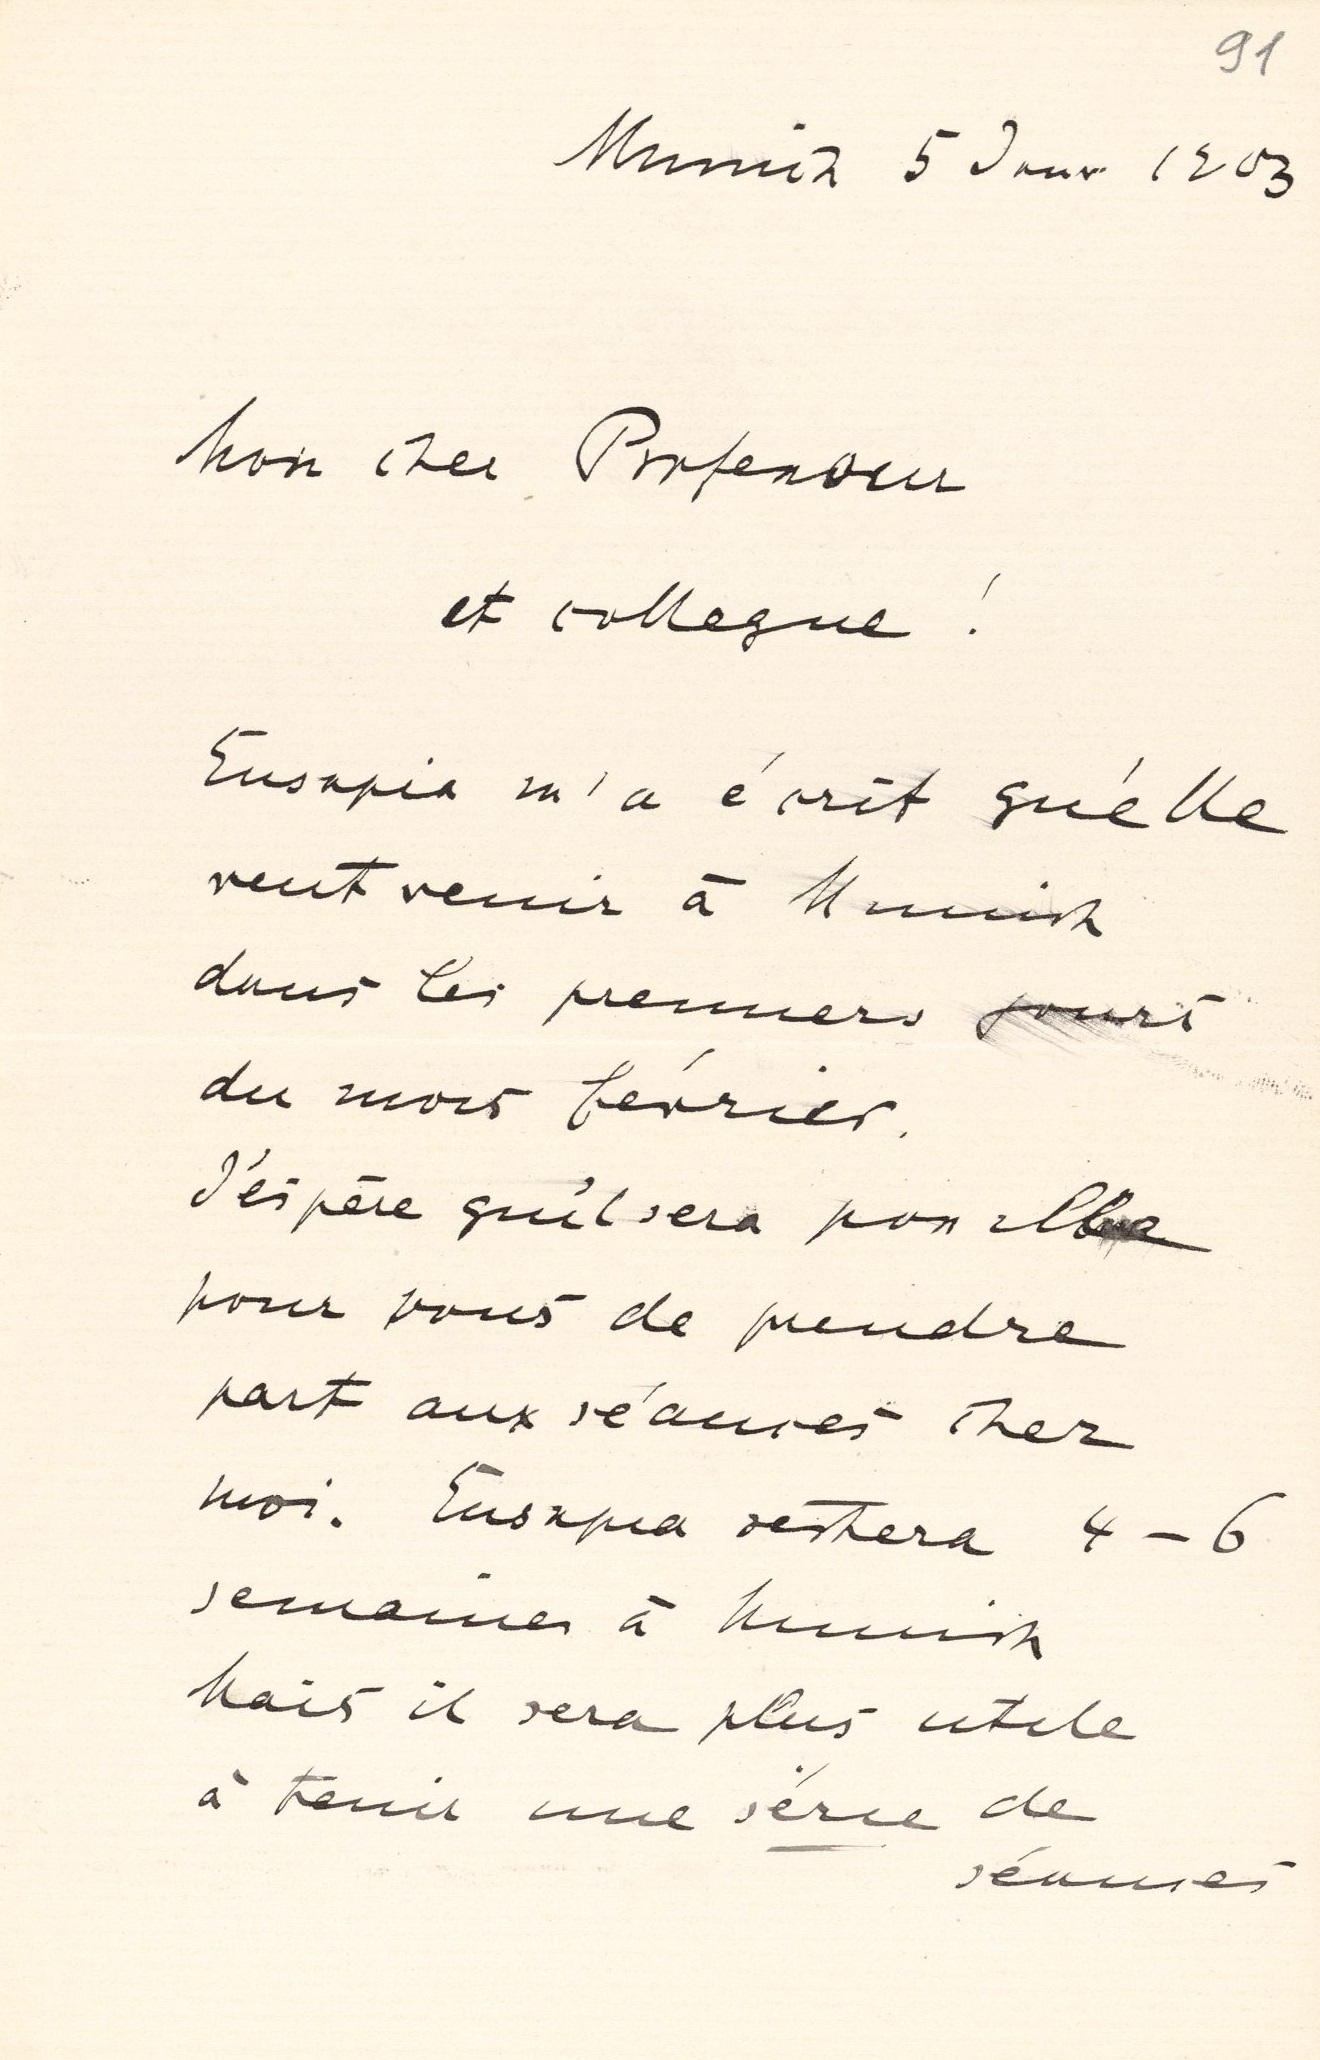 91
Munich 5 Janv 1903
Mon cher Professeur
et collegue !
Eusapia m'a écrit qu'elle
veut venir à Munich
dans les premiers jours
du mois février.
J'éspère qu'il sera possible
pour vous de prendre
part aux séances chez
moi. Eusapia restera 4 – 6
semaines à Munich
Mais il sera plus utile
à tenir une série de
séances